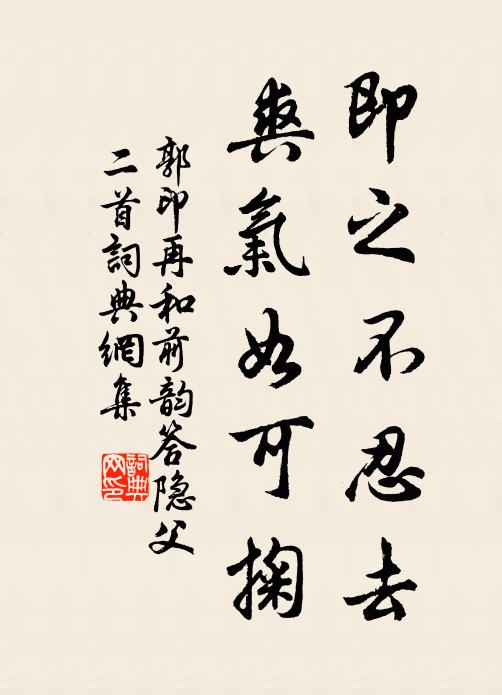 即之不忍去
爽氣如可掬
郭印再和前韵答隐父
二首詞典網集
詞典網印